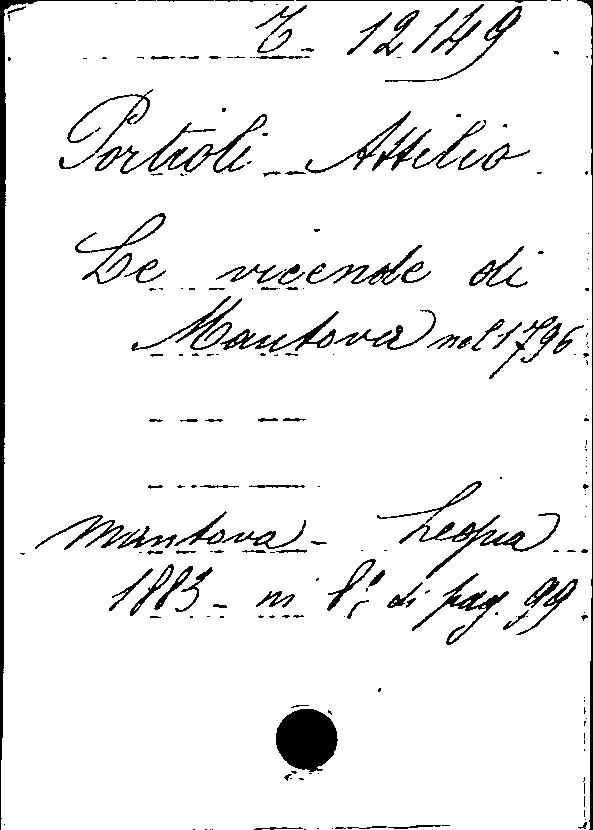 12149
Portioli Attilio
Le vicende di
Mantova nel 1796
Mantova -
1883 - in 8º di pag. 99